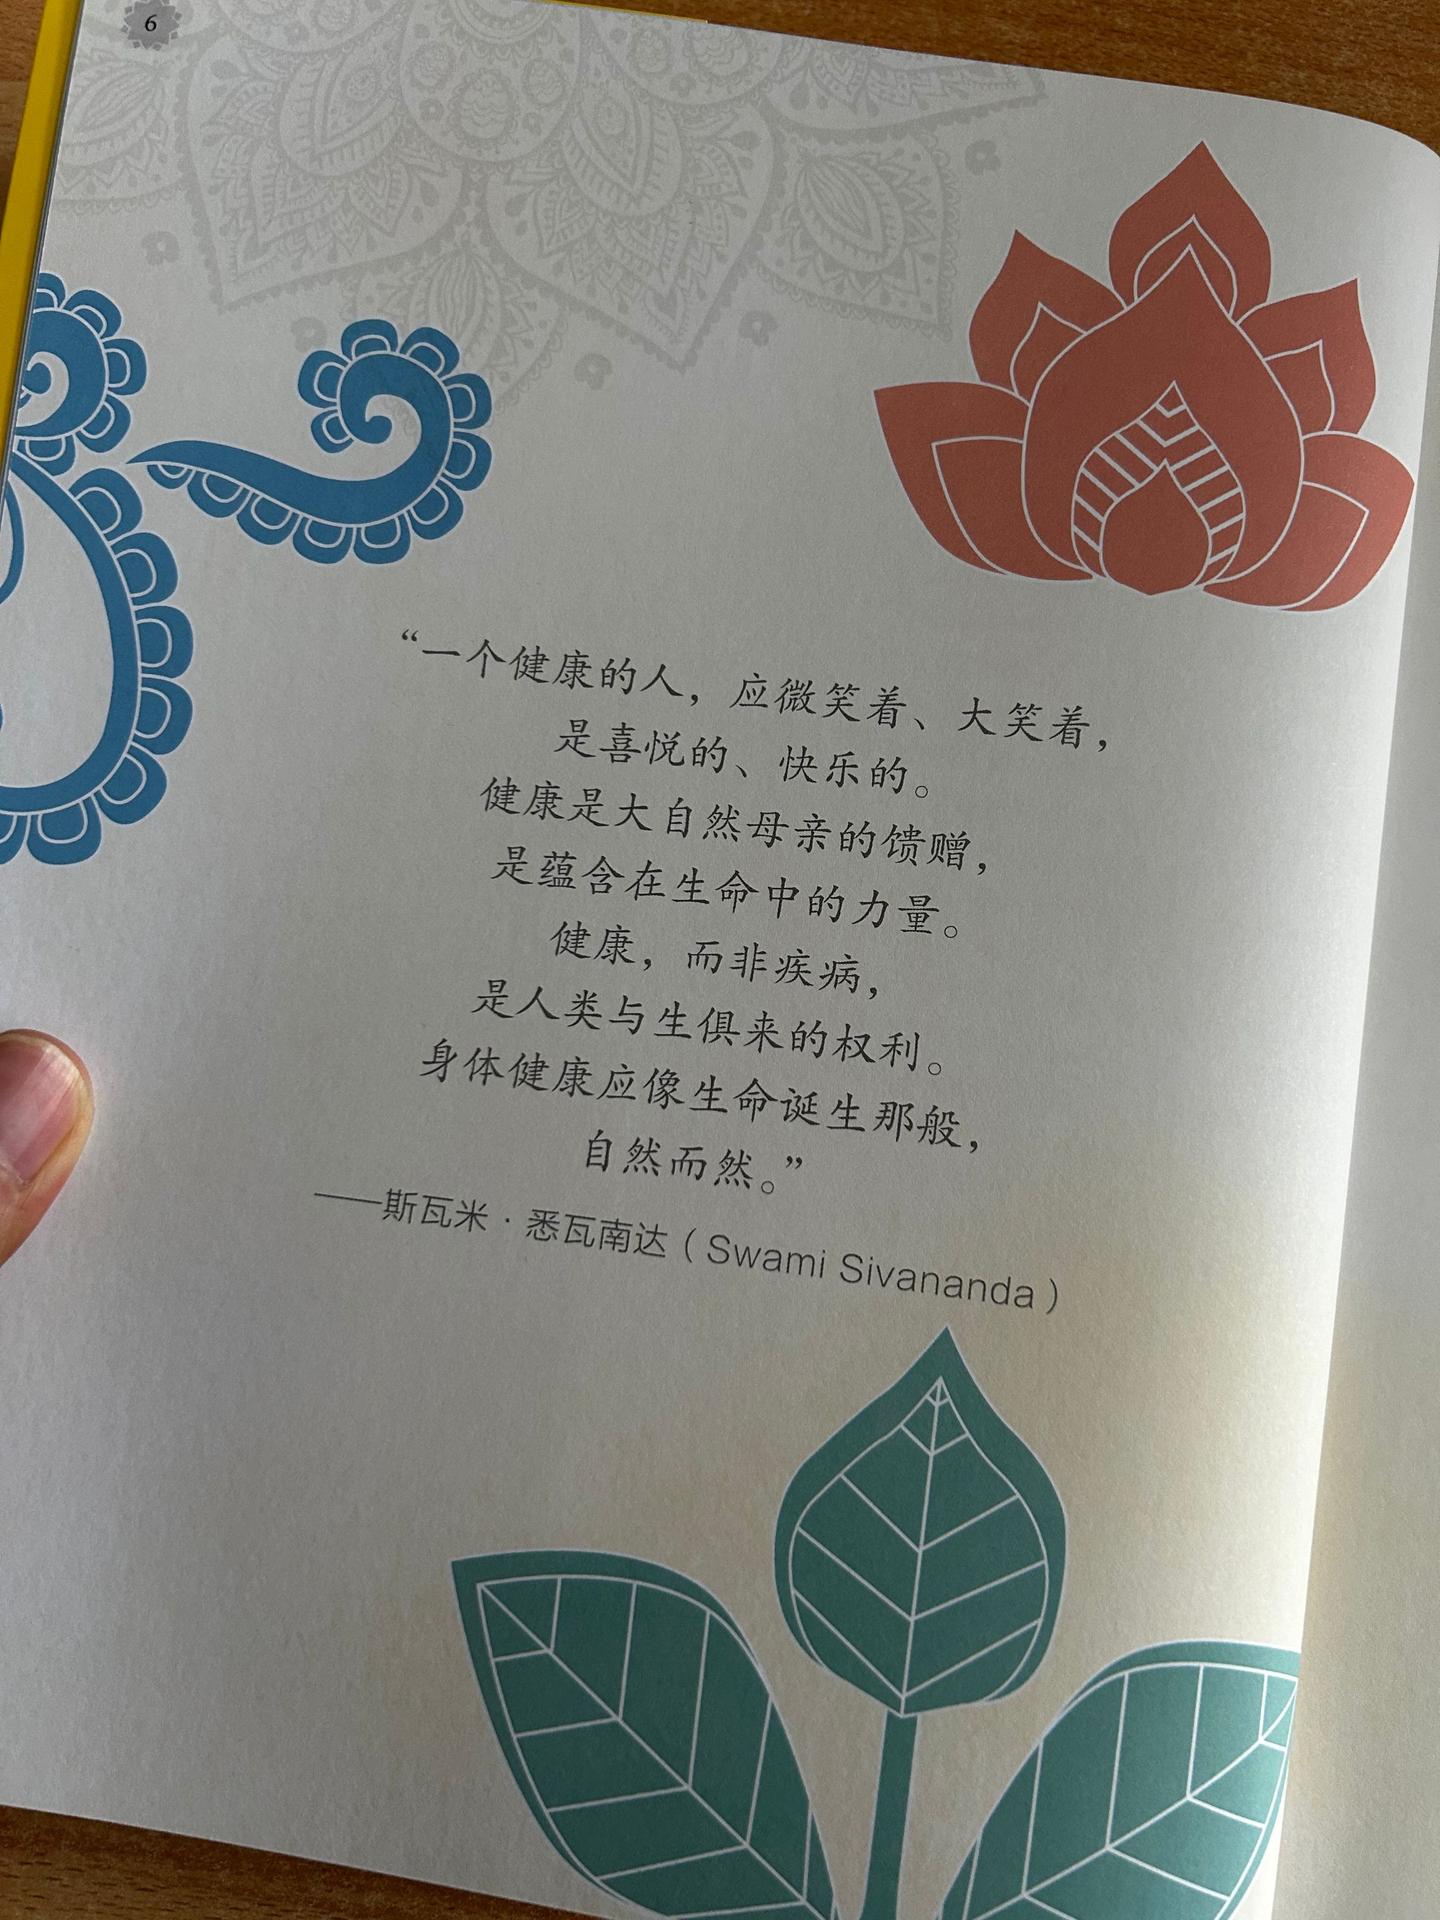 6
“一个健康的人，应微笑着、大笑着，
是喜悦的、快乐的。
健康是大自然母亲的馈赠，
是蕴含在生命中的力量。
健康，而非疾病，
是人类与生俱来的权利。
身体健康应像生命诞生那般，
自然而然。”
——斯瓦米·悉瓦南达（Swami Sivananda）